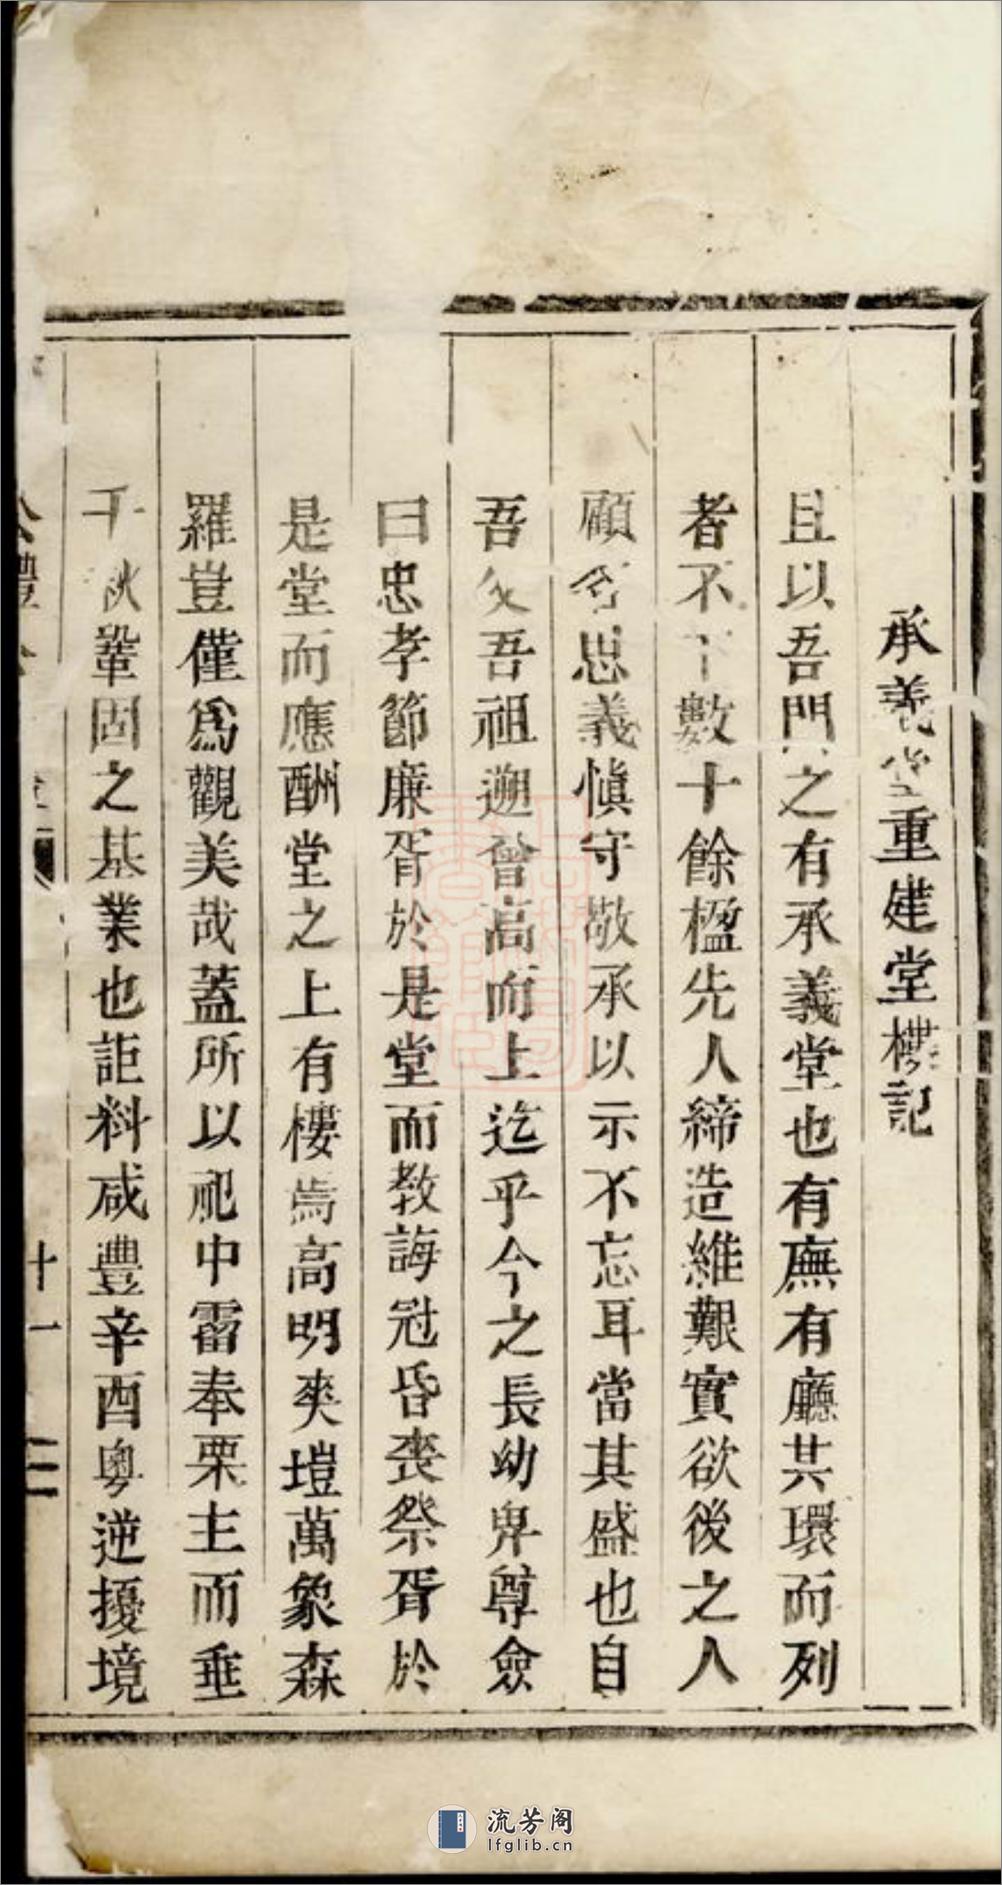 承義堂重建堂樓記
且以吾門之有承義堂也有廡有廳其環而列
者不下數十餘楹先人締造維艱實欲後之人
顧名思義慎守敬承以示不忘耳當其盛也自
吾父吾祖遡曾高而上迄乎今之長幼卑尊僉
曰忠孝節廉胥於是堂而教誨冠昏喪祭胥於
是堂而應酬堂之上有樓焉高明爽塏萬象森
羅豈僅為觀美哉蓋所以祀中霤奉栗主而垂
千秋鞏固之基業也詎料咸豐辛酉粵逆擾境
十一
流芳阁
lfglib.cn